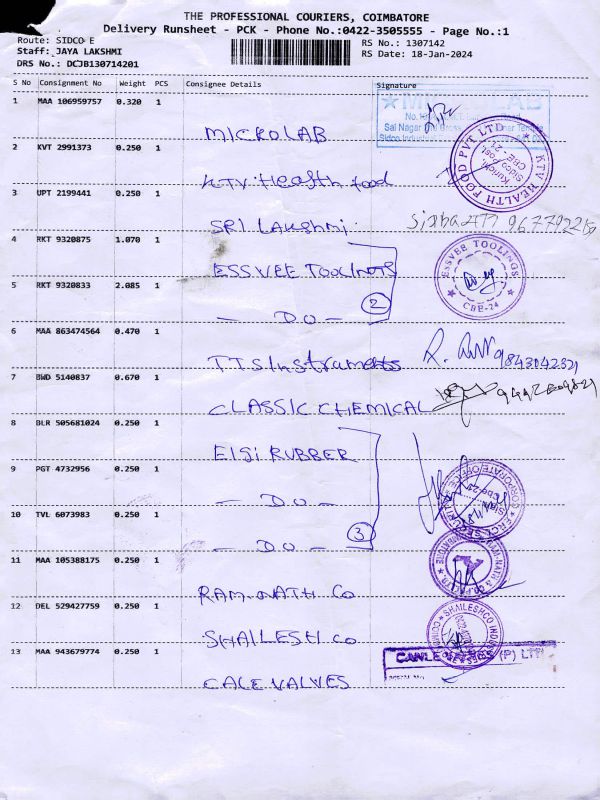 THE PROFESSIONAL COURIERS, COIMBATORE
Delivery Runsheet - PCK - Phone No.:0422-3505555 - Page No.:1
Route: SIDCO E
Staff: JAYA LAKSHMI
DRS No.: DCJB130714201
RS No.: 1307142
RS Date: 18-Jan-2024
S No Consignment No Weight PCS Consignee Details Signature
1 MAA 106959757 0.320 1
MICROLAB
MICROLAB
Sai Nagar
2 KVT 2991373 0.250 1
KTV Health food
KTV HEALTH FOOD PVT LTD
3 UPT 2199441 0.250 1
SRI Lakshmi
4 RKT 9320875 1.070 1
ESSVEE Toolings
ESSVEE TOOLINGS
CBE-24
5 RKT 9320833 2.085 1
2
- DO -
6 MAA 863474564 0.470 1
TTS Instraments
R. 9843042321
7 BWD 5140837 0.670 1
CLASSIC CHEMICAL
8 BLR 505681024 0.250 1
Elgi RUBBER
9 PGT 4732956 0.250 1
- DO -
CORPORATE OFFICE
10 TVL 6073983 0.250 1
3
- DO -
11 MAA 105388175 0.250 1
RAM NATH Co
12 DEL 529427759 0.250 1
SHAILESH Co
SHAILESHCO
13 MAA 943679774 0.250 1
(P) LTD
CALE VALVES